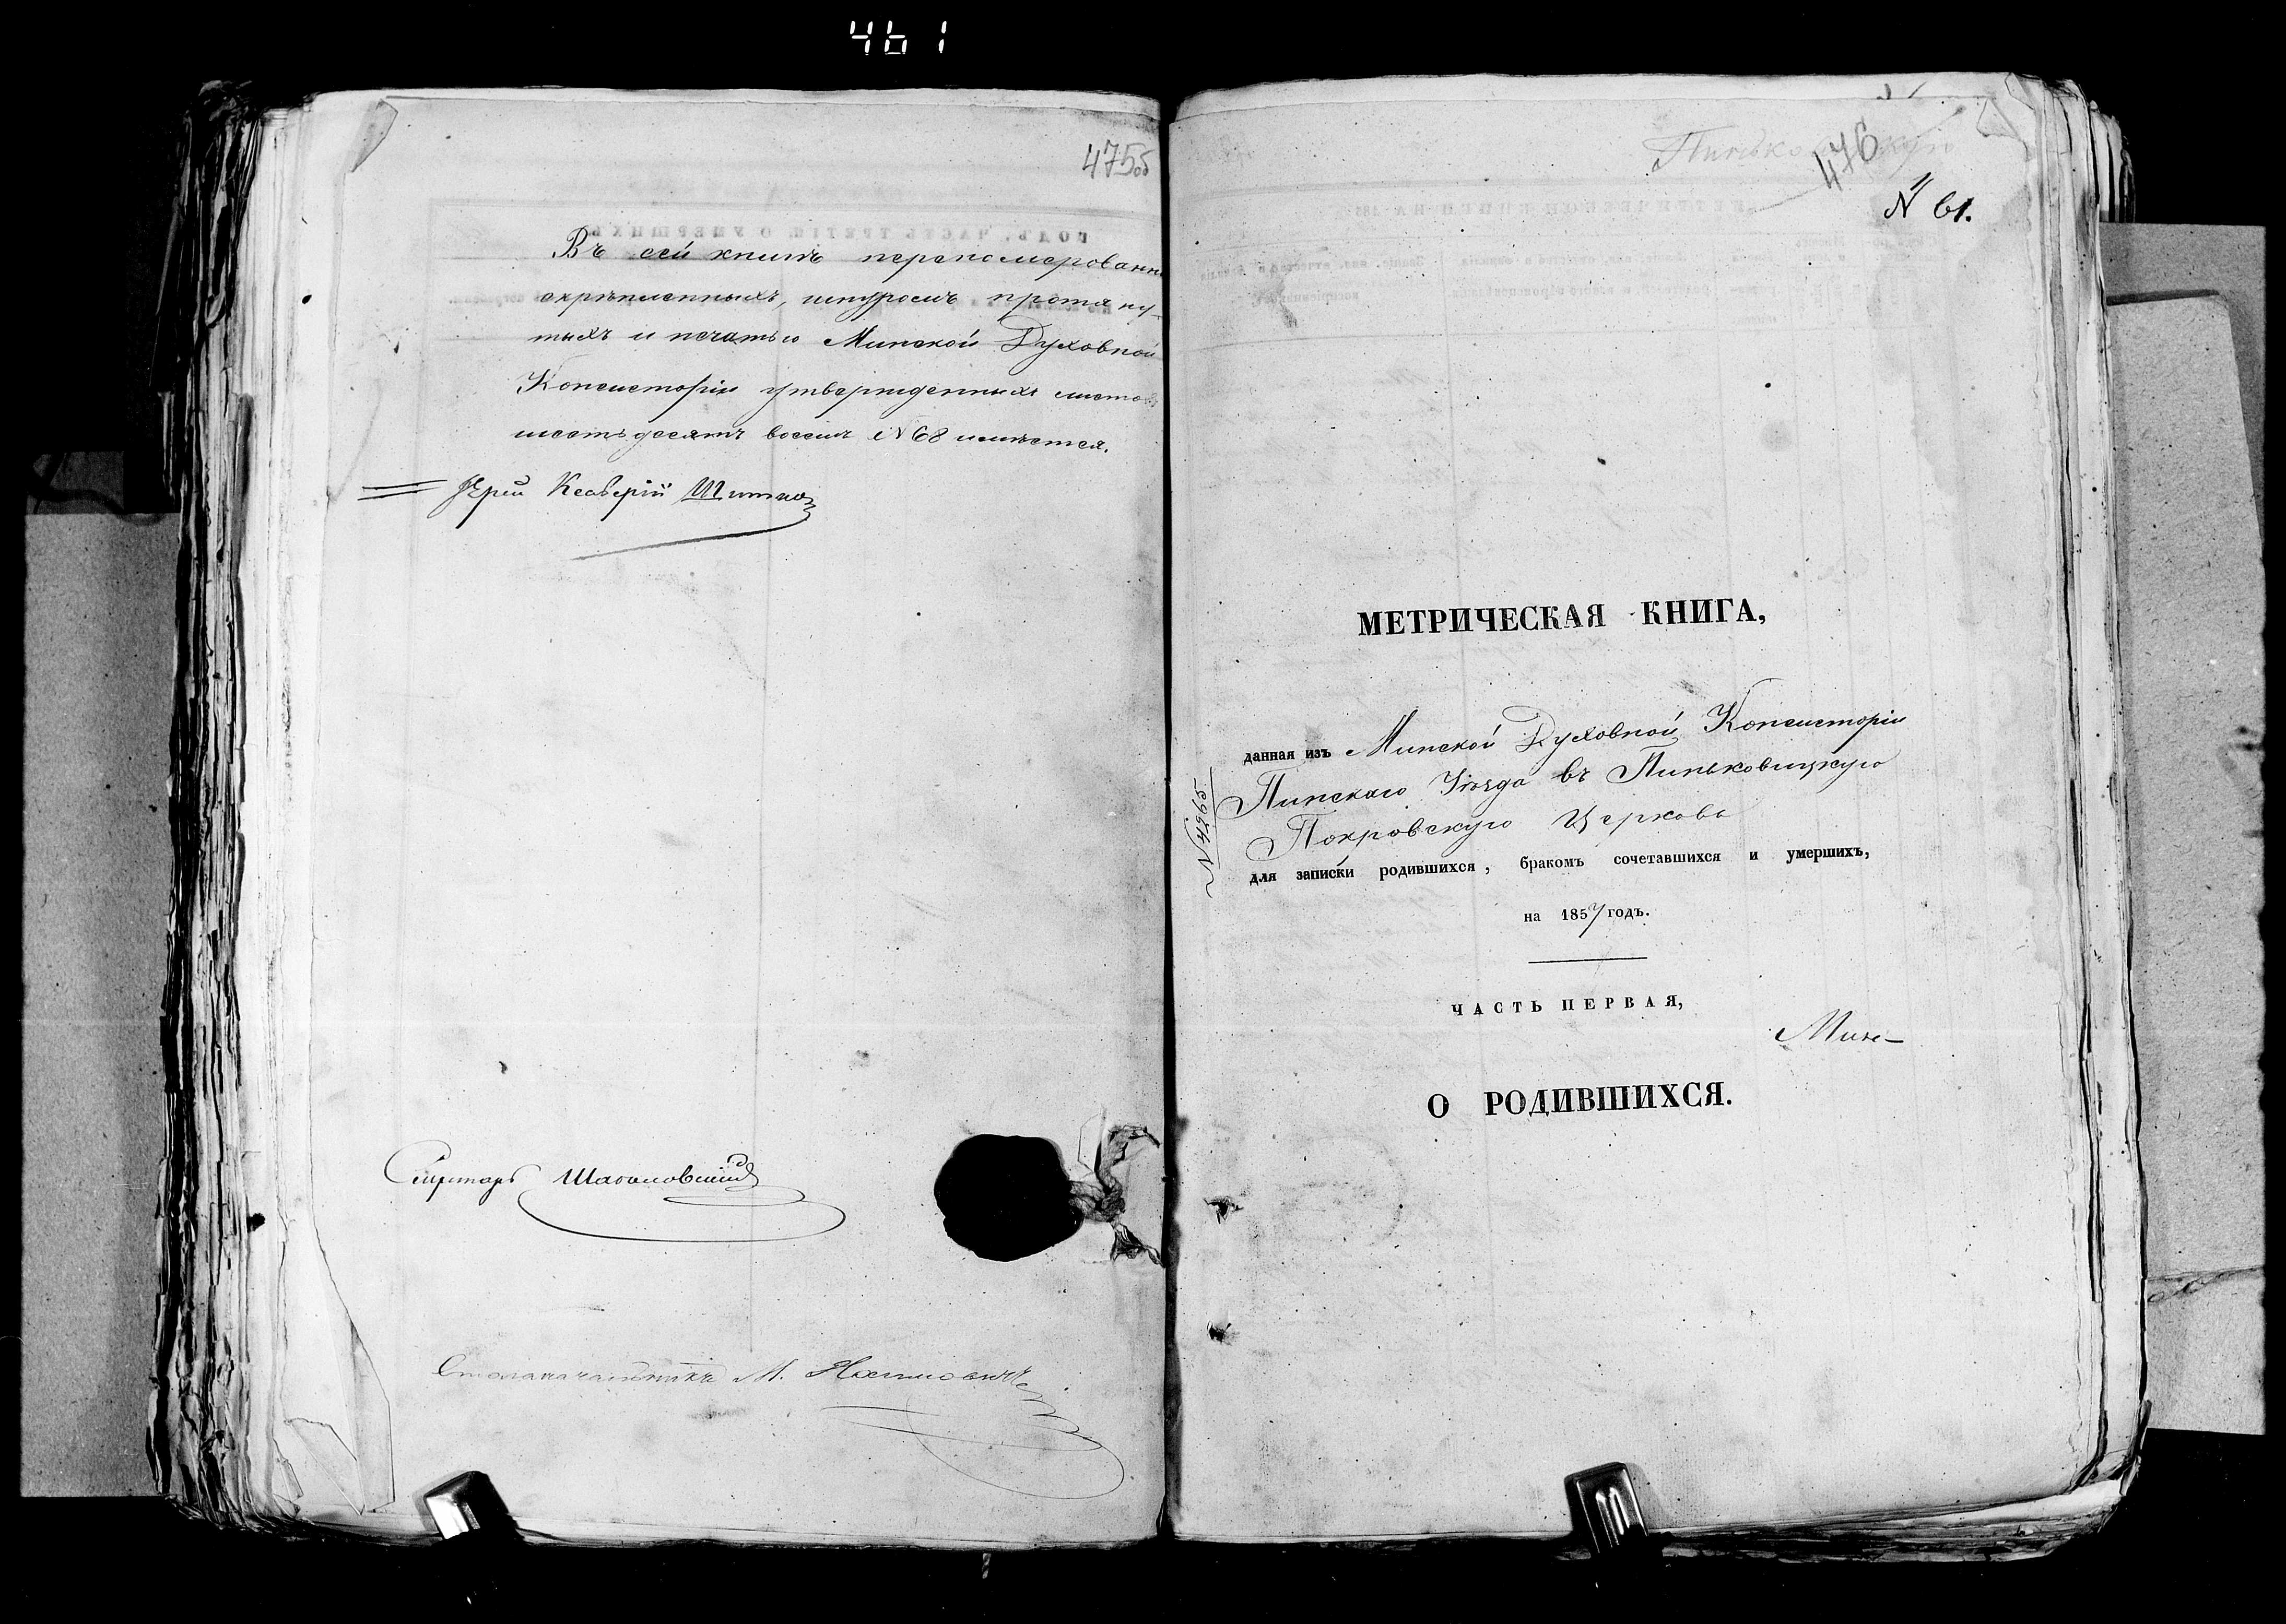 461
475об
Въ сей книгѣ переномерованн
скрѣпленныхъ, шнуромъ протяну-
тыхъ и печатью Минской Духовной
Консисторіи утвержденныхъ листов
шестьдесятъ восемь №68 имѣется.
Іерей Ксаверій
Секретарь
Столоначальникъ М.
476
№ 61.
МЕТРИЧЕСКАЯ КНИГА,
данная изъ Минской Духовной Консисторіи
Пинскаго Уѣзда въ Пиньковицкую
Покровскую Церковь
№ 4265
для записки родившихся, бракомъ сочетавшихся и умершихъ,
на 1857 годъ.
ЧАСТЬ ПЕРВАЯ,
Мин-
О РОДИВШИХСЯ.